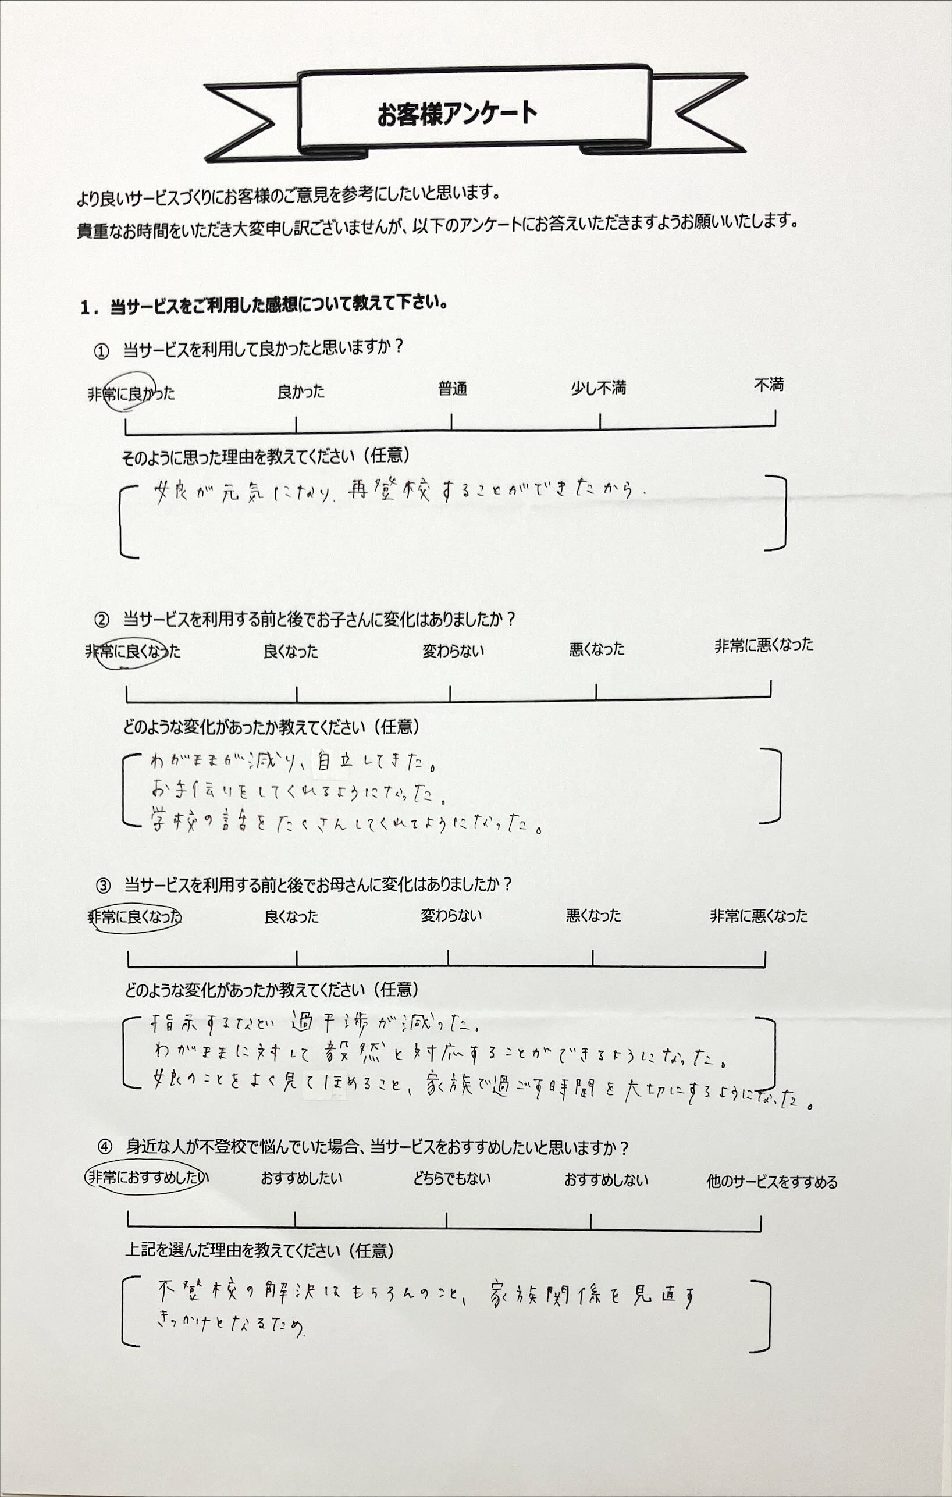 お客様アンケート
より良いサービスづくりにお客様のご意見を参考にしたいと思います。
貴重なお時間をいただき大変申し訳ございませんが、以下のアンケートにお答えいただきますようお願いいたします。
1. 当サービスをご利用した感想について教えて下さい。
① 当サービスを利用して良かったと思いますか？
非常に良かった 良かった 普通 少し不満 不満
そのように思った理由を教えてください（任意）
娘が元気になり、再登校することができたから.
② 当サービスを利用する前と後でお子さんに変化はありましたか？
非常に良くなった 良くなった 変わらない 悪くなった 非常に悪くなった
どのような変化があったか教えてください（任意）
わがままが減り、自立してきた。
お手伝いをしてくれるようになった.
学校の話をたくさんしてくれてようになった。
③ 当サービスを利用する前と後でお母さんに変化はありましたか？
非常に良くなった 良くなった 変わらない 悪くなった 非常に悪くなった
どのような変化があったか教えてください（任意）
指示するなどい過干渉が減った.
わがままに対して毅然と対応することができるようになった。
娘のことをよく見てほめること、家族で過ごす時間を大切にするようになった。
④ 身近な人が不登校で悩んでいた場合、当サービスをおすすめしたいと思いますか？
非常におすすめしたい おすすめしたい どちらでもない おすすめしない 他のサービスをすすめる
上記を選んだ理由を教えてください（任意）
不登校の解決はもちろんのこと、家族関係を見直す
きっかけとなるため